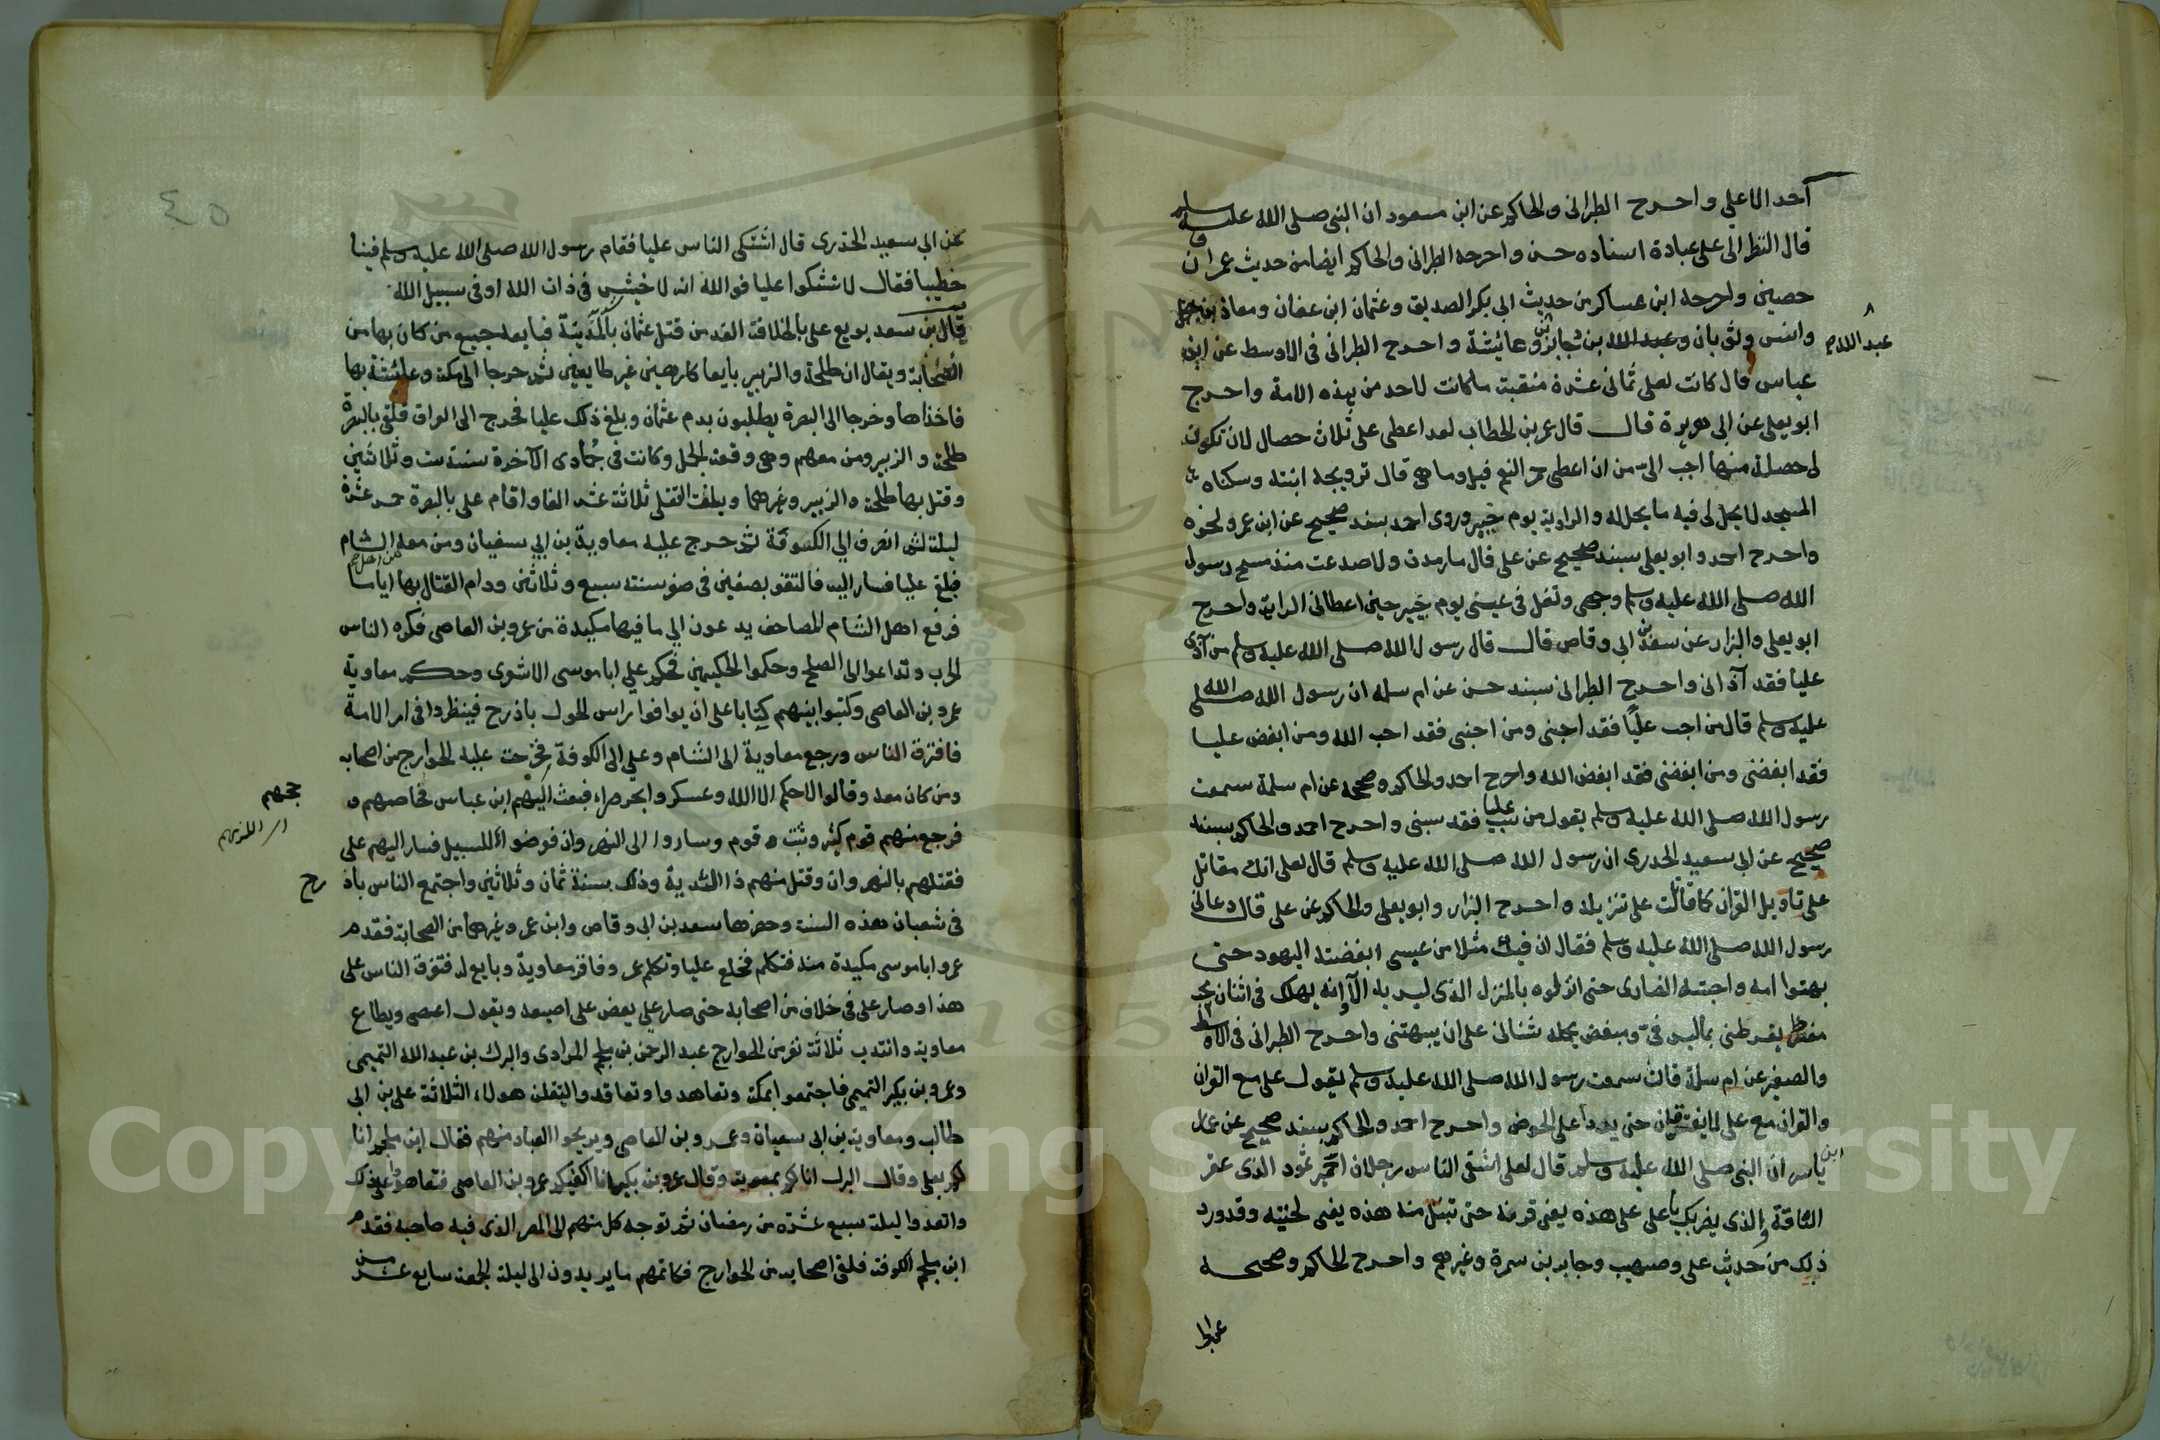 أحد الا علي واخرج الطبراني والحاكم عن ابن مسعود ان النبي صلى الله عليه وسلم
قال النظر الى علي عبادة اسناده حسن واخرجه الطبراني والحاكم ايضا من حديث عمران
حصين واخرجه ابن عساكر من حديث ابي بكر الصديق وعثمان ابن عفان ومعاذ بن جبل
وانس وثوبان وعبد الله بن جابر وعائشة واخرج الطبراني في الاوسط عن ابن
عبد الله
عباس قال كانت لعلي ثماني عشرة منقبة ما كانت لاحد من هذه الامة واخرج
ابو يعلى عن ابي هريرة قال قال عمر بن الخطاب لقد اعطي علي ثلاث خصال لان تكون
لي خصلة منها احب الي من ان اعطى حمر النعم قيل وما هي قال تزويجه ابنته وسكناه
المسجد لا يحل لي فيه ما يحل له والراية يوم خيبر وروى احمد بسند صحيح عن ابن عمر ونحوه
واخرج احمد وابو يعلى بسند صحيح عن علي قال ما رمدت ولا صدعت منذ مسح رسول
الله صلى الله عليه وسلم وجهي وتفل في عيني يوم خيبر حين اعطاني الراية واخرج
ابو يعلى والبزار عن سعد بن ابي وقاص قال قال رسول الله صلى الله عليه وسلم من آذى
عليا فقد آذاني واخرج الطبراني بسند حسن عن ام سلمه ان رسول الله صلى الله
عليه وسلم قال من احب عليا فقد احبني ومن احبني فقد احب الله ومن ابغض عليا
فقد ابغضني ومن ابغضني فقد ابغض الله واخرج احمد والحاكم وصححه عن ام سلمة سمعت
رسول الله صلى الله عليه وسلم يقول من سب عليا فقد سبني واخرج احمد والحاكم بسند
صحيح عن ابي سعيد الخدري ان رسول الله صلى الله عليه وسلم قال لعلي انك مقاتل
على تاويل القران كما قاتلت على تنزيله واخرج البزار وابو يعلى والحاكم عن علي قال دعاني
رسول الله صلى الله عليه وسلم فقال ان فيك مثلا من عيسى ابغضته اليهود حتى
بهتوا امه واحبته النصارى حتى انزلوه بالمنزل الذي ليس به الا وانه يهلك في اثنان محب
مفرط يقرطني بما ليس في ومبغض يحمله شناني على ان يبهتني واخرج الطبراني في الاوسط
والصغير عن ام سلمة قالت سمعت رسول الله صلى الله عليه وسلم يقول علي مع القران
والقران مع علي لا يفترقان حتى يردا علي الحوض واخرج احمد والحاكم بسند صحيح عن عمار
ابن ياسر ان النبي صلى الله عليه وسلم قال لعلي اشقى الناس رجلان احيمر ثمود الذي عقر
الناقة والذي يضربك يا علي على هذه يعني قرنه حتى تبتل منه هذه يعني لحيته وقد ورد
ذلك من حديث علي وصهيب وجابر بن سمرة وغيرهم واخرج الحاكم وصححه
٤٥
عن ابي سعيد الخدري قال اشتكى الناس عليا فقام رسول الله صلى الله عليه وسلم فينا
خطيبا فقال لا تشكوا عليا فوالله انه لاخيشن في ذات الله او في سبيل الله
قال بن سعد بويع علي بالخلافة الغد من قتل عثمان بالمدينة فبايعه جميع من كان بها من
الصحابة ويقال ان طلحة والزبير بايعا كارهين غير طايعين ثم خرجا الى مكة وعائشة بها
فاخذاها وخرجا الى البصرة يطلبون بدم عثمان وبلغ ذلك عليا فخرج الى العراق فلقي بالبصرة
طلحة والزبير ومن معهم وهي وقعة الجمل وكانت في جمادى الآخرة سنة ست وثلاثين
وقتل بها طلحة والزبير وغيرهما وبلغت القتلى ثلاثة عشر الفا واقام علي بالبصرة خمس عشرة
ليلة ثم انصرف الي الكوفة ثم خرج عليه معاوية بن ابي سفيان ومن معه بالشام
فبلغ عليا فسار اليه فالتقو بصفين في صفر سنة سبع وثلاثين ودام القتال بها اياما
فرفع اهل الشام المصاحف يدعون الي ما فيها مكيدة من عمرو بن العاصي فكره الناس
الحرب وتداعوا الى الصلح وحكموا الحكمين فحكم علي ابا موسى الاشعري وحكم معاوية
عمرو بن العاصي وكتبوا بينهم كتابا على ان يوافوا راس الحول باذرح فينظروا في امر الامة
فافترق الناس ورجع معاوية الى الشام وعلي الى الكوفة فخرجت عليه الخوارج من اصحابه
ومن كان معه وقالوا لا حكم الا الله وعسكروا بحروراء فبعث اليهم ابن عباس فخاصمهم و
حجهم
فرجع منهم قوم كثير وثبت قوم وساروا الى النهروان فعرضوا للسبيل فسار اليهم علي
فقتلهم بالنهروان وقتل منهم ذا الثدية وذلك سنة ثمان وثلاثين واجتمع الناس باذ
رح
في شعبان هذه السنة وحضرها سعد بن ابي وقاص وابن عمر وغيرهما من الصحابة فقدم
عمرو ابا موسى مكيدة منه فتكلم فخلع عليا وتكلم عمرو فاقر معاوية وبايع له فتفرق الناس على
هذا وصار علي في خلاف من اصحابه حتى صار علي يعض على اصبعه ويقول اعصى ويطاع
معاوية وانتدب ثلاثة نفر من الخوارج عبد الرحمن بن ملجم المرادي والبرك بن عبد الله التميمي
وعمرو بن بكير التميمي فاجتمعوا بمكة وتعاهدوا وتعاقدوا ليقتلن هولاء الثلاثة علي بن ابي
طالب ومعاوية بن ابي سفيان وعمرو بن العاصي ويريحوا العباد منهم فقال ابن ملجم انا
لكم بعلي وقال البرك انا لكم بمعوية وقال عمرو بن بكير انا اكفيكم عمرو بن العاصي فتعاهدوا على ذلك
واتعدوا ليلة سبع عشرة من رمضان ثم توجه كل منهم الى المصر الذي فيه صاحبه فقدم
ابن ملجم الكوفة فلقي اصحابه من الخوارج فكاتمهم ما يريدون الى ليلة الجمعة سابع عشر
Copyright © King Saud University
1957